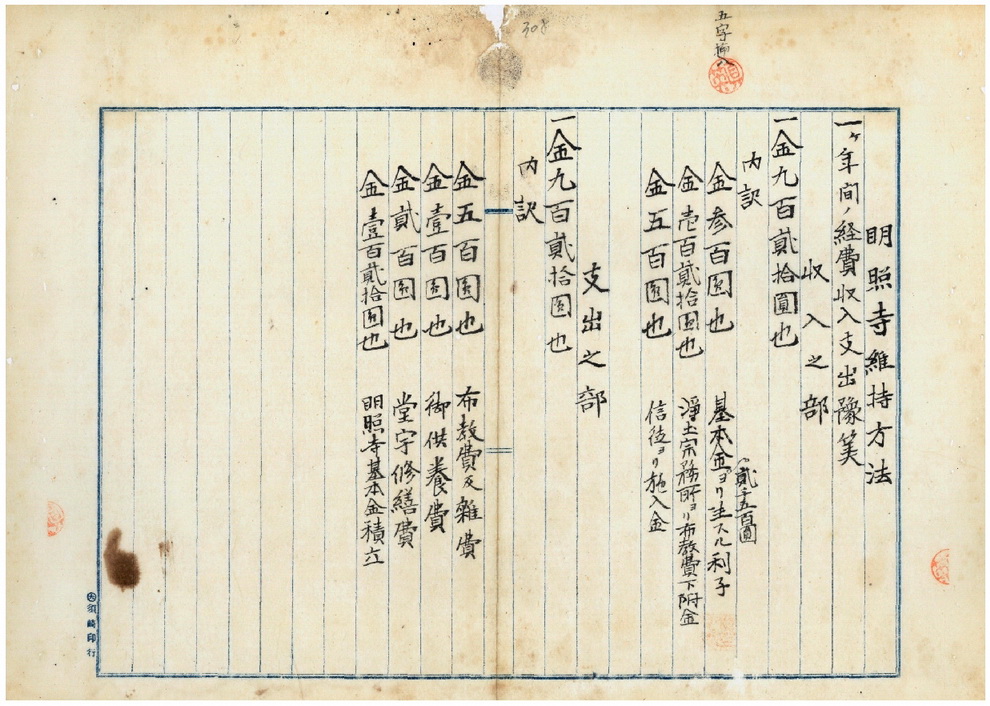 五字挿入
明照寺維持方法
一ヶ年間ノ経費収入支出豫算
収入之部
一金九百貳拾圓也
内訳
金参百圓也 基本金ヨリ生スル利子
貳千五百圓
金壱百貳拾圓也 淨土宗務所ヨリ布教費下附金
金五百圓也 信徒ヨリ施入金
支出之部
一金九百貳拾圓也
内訳
金五百圓也 布教費及雑費
金壹百圓也 御供養費
金貳百圓也 堂宇修繕費
金壹百貳拾圓也 明照寺基本金積立
須崎印行
308